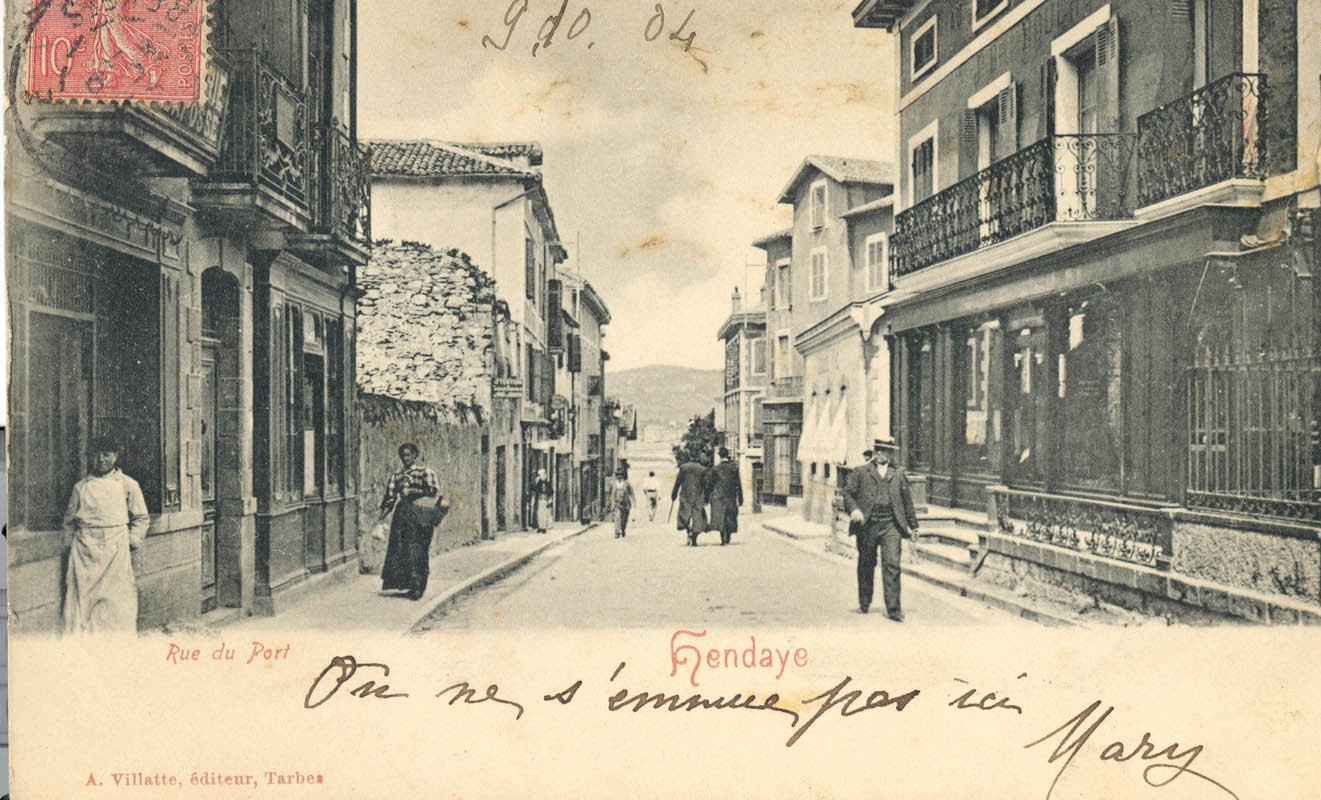 10c
POSTES
9.10.04
Rue du Port
Hendaye
On ne s'ennuie pas ici
Mary
A. Villatte, éditeur, Tarbes